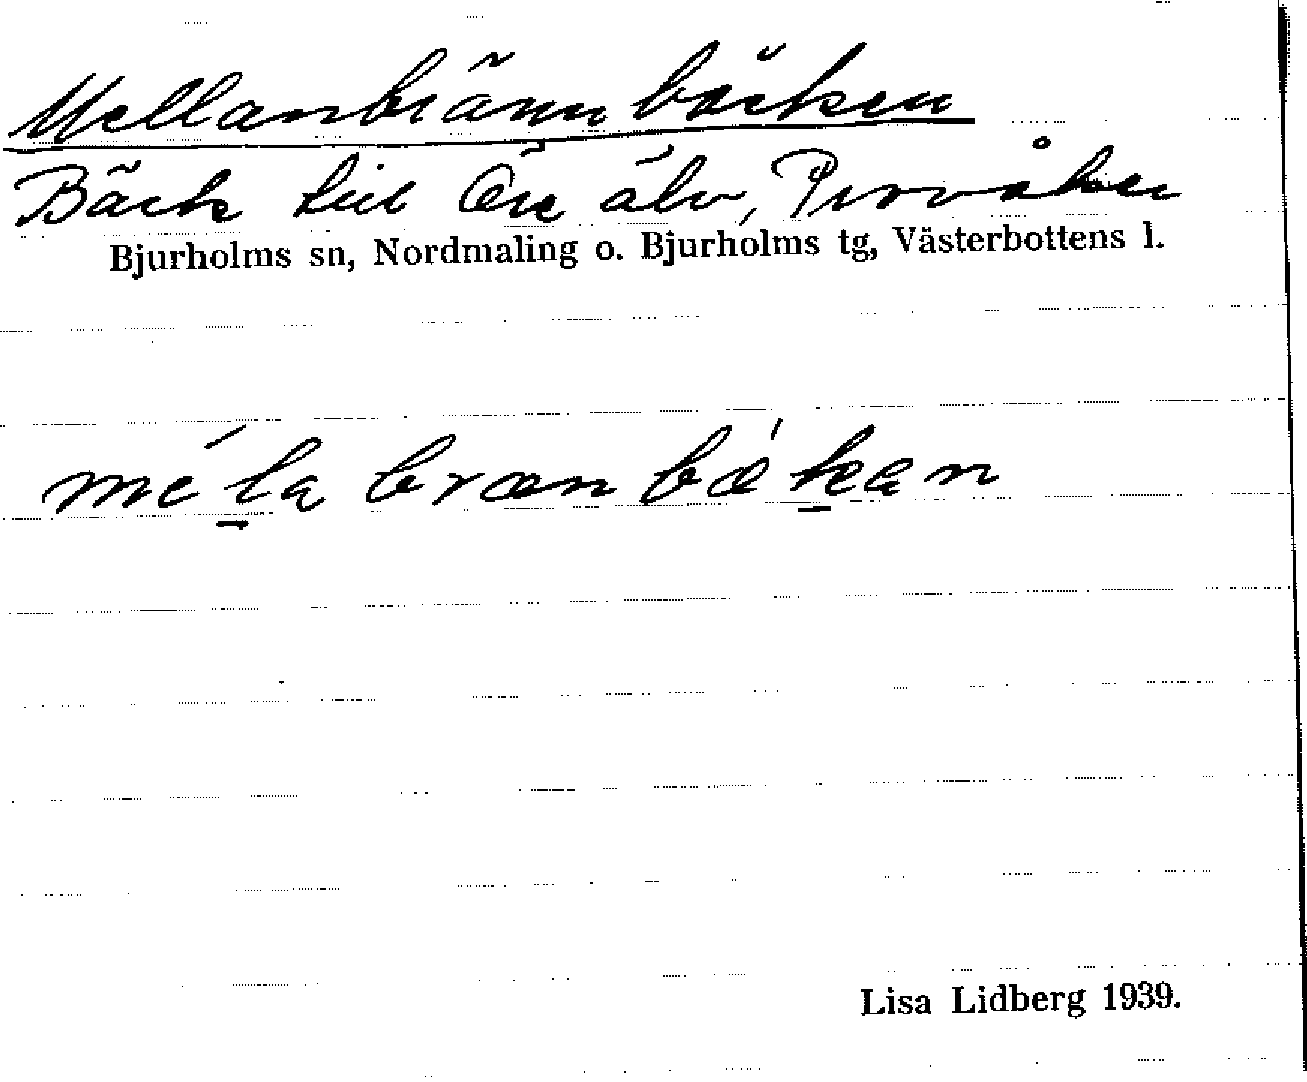 Mellanbrännbäcken
Bäck till Öre älv, Provåker
Bjurholms sn, Nordmaling o. Bjurholms tg, Västerbottens l.
mé̱la brænbæ̀ḵan
Lisa Lidberg 1939.